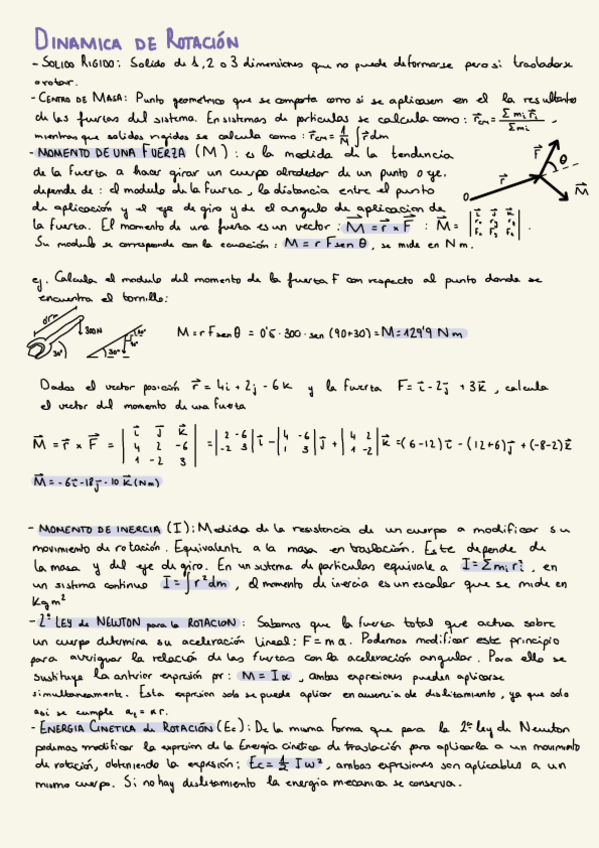 DINAMICA DE ROTACIÓN
- SOLIDO RIGIDO: Solido de 1, 2 o 3 dimensiones que no puede deformarse pero si trasladarse
o rotar.
- CENTRO DE MASA: Punto geometrico que se comporta como si se aplicasen en el la resultante
de las fuerzas del sistema. En sistemas de particulas se calcula como: r⃗cm = Σ mi r⃗i / Σ mi ,
mientras que solidos rigidos se calcula como: r⃗cm = 1/M ∫ r⃗ dm
- MOMENTO DE UNA FUERZA (M): es la medida de la tendencia
de la fuerza a hacer girar un cuerpo alrededor de un punto o eje.
depende de: el modulo de la fuerza, la distancia entre el punto
de aplicación y el eje de giro y de el angulo de aplicacion de
la fuerza. El momento de una fuerza es un vector: M⃗ = r⃗ x F⃗ : M⃗ =
F⃗ θ r⃗ M⃗ O
Su modulo se corresponde con la ecuación: M = r F sen θ, se mide en N m.
ej. Calcula el modulo del momento de la fuerza F con respecto al punto donde se
encuentra el tornillo:
300N 30° 30°
M = r F sen θ = 0'5 · 300 · sen (90+30) = M = 129'9 N m
Dados el vector posición r⃗ = 4i + 2j - 6k y la fuerza F = i⃗ - 2j⃗ + 3k⃗, calcula
el vector del momento de una fuerza
M⃗ = r⃗ x F⃗ = | i⃗ j⃗ k⃗ ; 4 2 -6 ; 1 -2 3 | = | 2 -6 ; -2 3 | i⃗ - | 4 -6 ; 1 3 | j⃗ + | 4 2 ; 1 -2 | k⃗ = (6-12) i⃗ - (12+6) j⃗ + (-8-2) k⃗
M⃗ = -6i⃗ - 18j⃗ - 10k⃗ (Nm)
- MOMENTO DE INERCIA (I): Medida de la resistencia de un cuerpo a modificar su
movimiento de rotación. Equivalente a la masa en traslación. Este depende de
la masa y del eje de giro. En un sistema de particulas equivale a I = Σ mi ri², en
un sistema continuo I = ∫ r² dm, el momento de inercia es un escalar que se mide en
Kg m²
- 2ª LEY de NEWTON para la ROTACION: Sabemos que la fuerza total que actua sobre
un cuerpo determina su aceleración lineal: F = m a. Podemos modificar este principio
para averiguar la relación de las fuerzas con la aceleración angular. Para ello se
sustituye la anterior expresión por: M = I α, ambas expresiones pueden aplicarse
simultaneamente. Esta expresion solo se puede aplicar en ausencia de deslizamiento, ya que solo
asi se cumple at = α r.
- ENERGIA CINETICA de ROTACIÓN (Ec): De la misma forma que para la 2ª ley de Newton
podemos modificar la expresion de la Energia cinetica de traslación para aplicarla a un movimiento
de rotación, obteniendo la expresión: Ec = 1/2 I ω², ambas expresiones son aplicables a un
mismo cuerpo. Si no hay deslizamiento la energia mecanica se conserva.